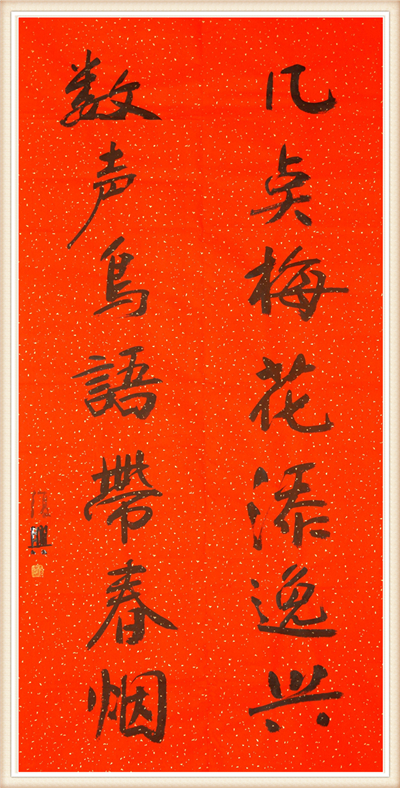 几点梅花添逸兴
数声鸟語帶春烟